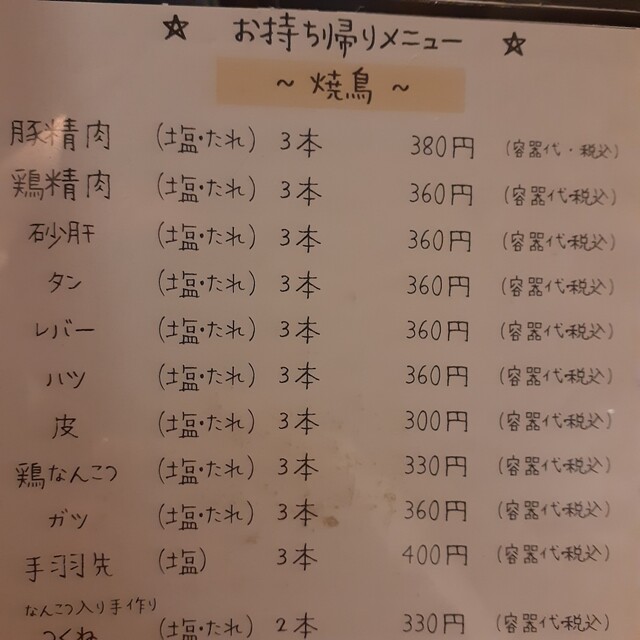 ☆ お持ち帰りメニュー ☆
~ 焼鳥 ~
豚精肉 (塩・たれ) 3本 380円 (容器代・税込)
鶏精肉 (塩・たれ) 3本 360円 (容器代・税込)
砂肝 (塩・たれ) 3本 360円 (容器代・税込)
タン (塩・たれ) 3本 360円 (容器代・税込)
レバー (塩・たれ) 3本 360円 (容器代・税込)
ハツ (塩・たれ) 3本 360円 (容器代・税込)
皮 (塩・たれ) 3本 300円 (容器代・税込)
鶏なんこつ (塩・たれ) 3本 330円 (容器代・税込)
ガツ (塩・たれ) 3本 360円 (容器代・税込)
手羽先 (塩) 3本 400円 (容器代・税込)
なんこつ入り手作り
つくね (塩・たれ) 2本 330円 (容器代・税込)